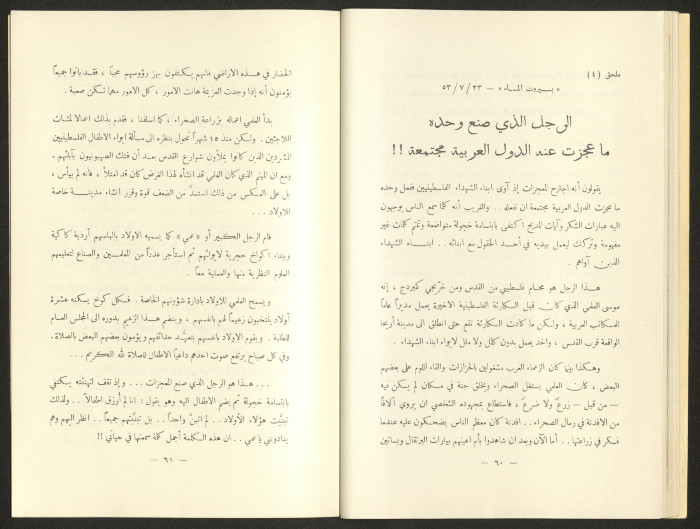 ملحق (٤)
« بيروت المساء » – ٥٣/٧/٢٣
الرجل الذي صنع وحده
ما عجزت عنه الدول العربية مجتمعة !!
يقولون أنه اجترح المعجزات إذ آوى ابناء الشهداء الفلسطينيين ففعل وحده
ما عجزت الدول العربية مجتمعة ان تفعله . . والغريب أنه كلما سمع الناس يوجهون
اليه عبارات الشكر وآيات المديح اكتفى بابتسامة خجولة متواضعة وتمتم كلمات غير
مفهومة وتركك ليعمل بيديه في أحد الحقول مع ابنائه . . ابناء الشهداء
الذين آواهم .
هذا الرجل هو محام فلسطيني من القدس ومن خرّيجي كمبردج ، إنه
موسى العلمي الذي كان قبل الكارثة الفلسطينية الاخيرة يعمل مديراً عاماً
للمكاتب العربية ، ولكن ما كادت الكارثة تقع حتى انطلق الى مدينة أريحا
الواقعة قرب القدس ، واخذ يعمل بدون كلل ولا ملل لايواء ابناء الشهداء .
وهكذا بينما كان الزعماء العرب مشغولين بالحزازات والقاء اللوم على بعضهم
البعض ، كان العلمي يستغل الصحراء ويخلق جنة في مكان لم يكن فيه
– من قبل – زرعٌ ولا ضرعٌ ، فاستطاع بمجهوده الشخصي ان يروي آلافاً
من الافدنة في رمال الصحراء . . افدنة كان معظم الناس يضحكون عليه عندما
فكر في زراعتها . . أما الآن وبعد ان شاهدوا بأم اعينهم بيارات البرتقال وبساتين
– ٦٠ –
الخضار في هذه الاراضي فانهم يكتفون بهز رؤوسهم عجباً ، فقد باتوا جميعاً
يؤمنون أنه إذا وجدت العزيمة هانت الامور ، كل الامور مهما تكن صعبة .
بدأ العلمي اعماله بزراعة الصحراء ، كما اسلفنا ، فقدم بذلك اعمالا لمئات
اللاجئين . ولكن منذ ١٥ شهراً تحول بنظره الى مسألة ايواء الاطفال الفلسطينيين
المشردين الذين كانوا يملأون شوارع القدس بعد أن فتك الصهيونيون بآبائهم .
ومع ان الميتم الذي كان العلمي قد أنشأه لهذا الغرض كان قد امتلأ ، فانه لم ييأس ،
بل على العكس من ذلك استمدّ من الضعف قوة وقرر انشاء مدينة خاصة
للاولاد . . .
قام الرجل الكبير أو « عمي » كما يسميه الاولاد بالباسهم أردية كاكية
وببناء اكواخ حجرية لايوائهم ثم استأجر عدداً من المعلمين والصناع لتعليمهم
العلوم النظرية منها والعملية معاً .
و يسمح العلمي للاولاد بادارة شؤونهم الخاصة . فكل كوخ يسكنه عشرة
أولاد ينتخبون زعيماً لهم بانفسهم ، وينضم هذا الزعيم بدوره الى المجلس العام
للطلبة . ويقوم الاولاد بانفسهم بتعهّد حدائقهم ويؤمون بعضهم البعض بالصلاة .
وفي كل صباح يرتفع صوت احدهم داعياً الاطفال للصلاة لله الكريم . . .
. . . هذا هو الرجل الذي صنع المعجزات . . . وإذ تقف لتهنئته يكتفي
بابتسامة خجولة ثم يضم الاطفال اليه وهو يقول : انا لم أرزق اطفالاً . . ولذلك
تبنّيت هؤلاء الأولاد . . لم اتبنّ واحداً . . بل تبنّيتهم جميعاً . . انظر اليهم وهم
ينادونني يا عمي . . ان هذه الكلمة أجمل كلمة سمعتها في حياتي !!
– ٦١ –